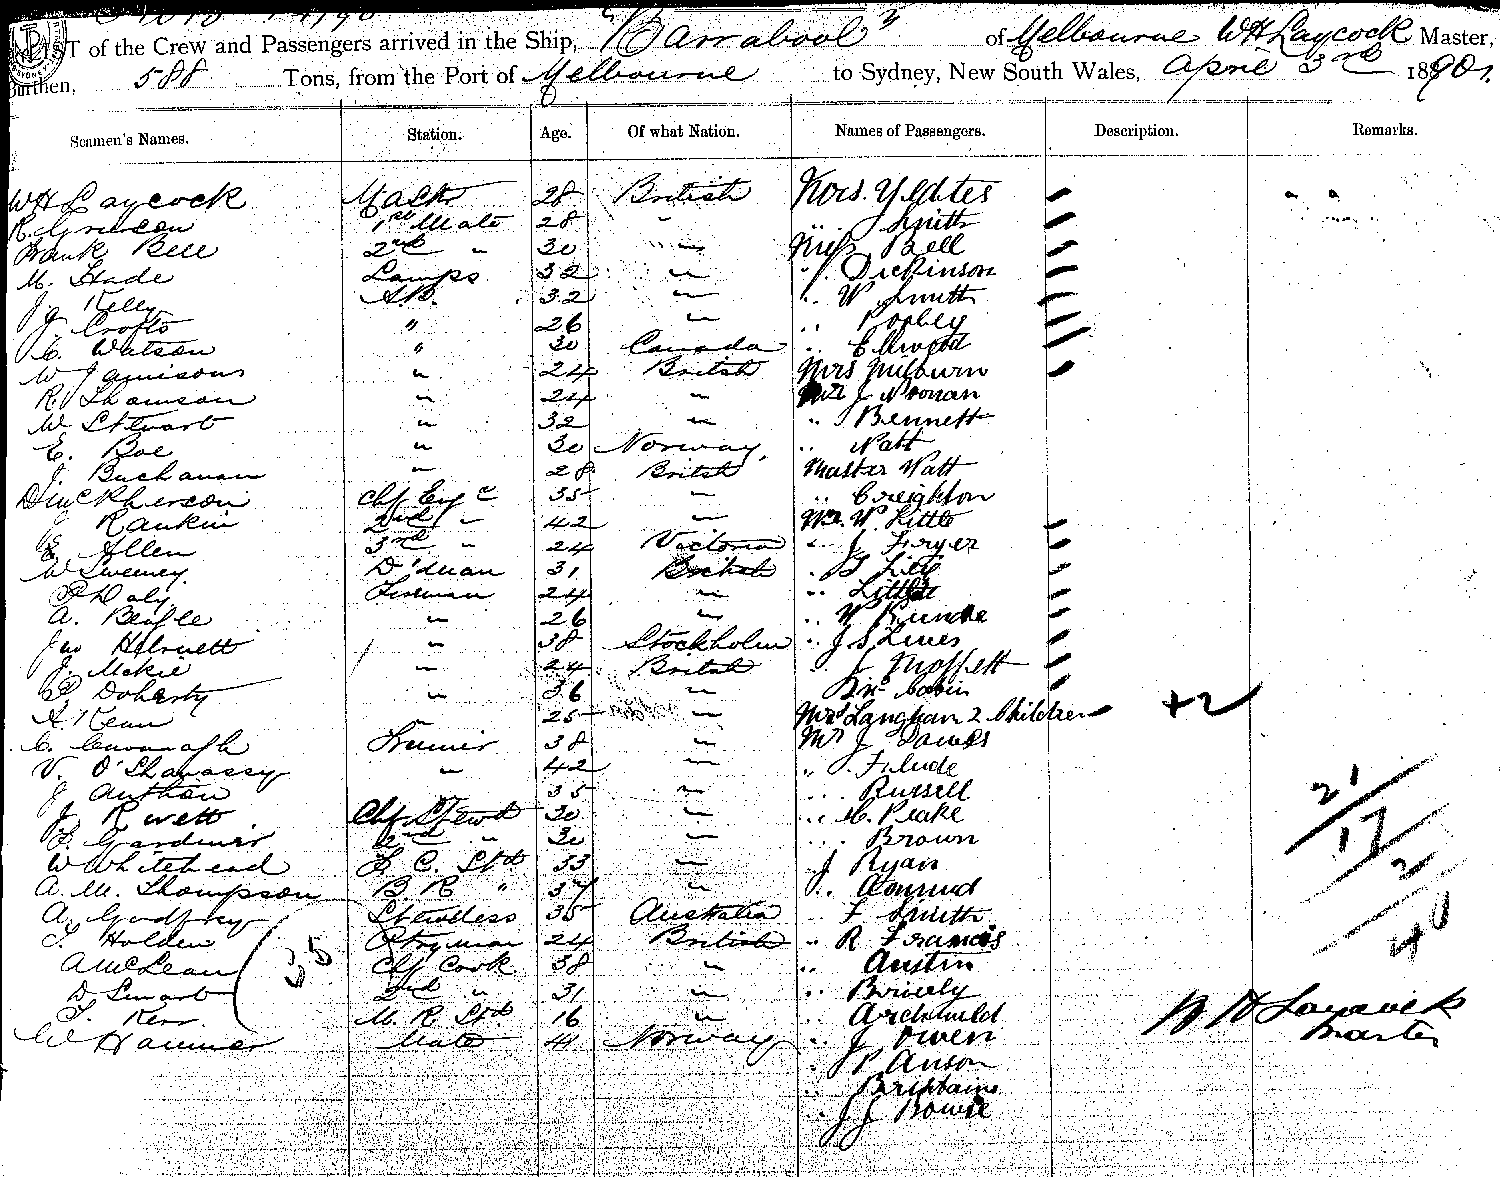 LIST of the Crew and Passengers arrived in the Ship, "Barrabool" of Melbourne W H Laycock Master,
Burthen, 588 Tons, from the Port of Melbourne to Sydney, New South Wales, April 3rd 1890.
Seamen's Names. Station. Age. Of what Nation. Names of Passengers. Description. Remarks.
W H Laycock Mastr 28 British Mrs. Yeates
R. Grierson 1st Mate 28 " .. Smith
Frank Bell 2nd " 30 " Miss Bell
M. Hade Lamps 32 " .. Dickinson
J. Kelly A.B. 32 " .. W Smith
J. Crofts " 26 " ..
C. Watson " 30 Canada .. Ellwood
W Jamison " 24 British Mrs Milburn
R. Thomson " 24 " Mr J Noonan
W Stewart " 32 " .. Bennett
E. Boe " 30 Norway. .. Watt
J. Buchanan " 28 British Master Watt
D McPherson Chf Engr 35 " .. Creighton
J Rankin 2nd " 42 " Mr. W. Little
E. Allen 3rd " 24 Victoria .. J Fryer
W Sweeney D'kman 31 British ..
P Daly Fireman 24 " ..
A. Beagle " 26 " .. W
Jno " 38 Stockholm .. J S Lines
J. McKie " 24 British .. J Moffett
P Doherty " 36 "
A. Kean " 25 " Mrs Langhan 2 Children +2
C. Cavanagh Trimer 38 " Mr J
V. O'Shanassy " 42 " ..
J 35 " ... Russell
J. Rivett Chf Stewd 30 " .. M. Peake
F. Gardiner 2nd " 30 " ... Brown
W Whitehead F. C. Std 33 " J Ryan
A. M. Thompson B R " 37 " ..
A. Godfrey Stewdess 35 Australia F Smith
T. Holden P'tryman 24 British .. R Francis
A McLean Chf Cook 38 " .. Austin
D Smart 2nd " 31 " .. Brierly
T. Kerr. M. R. Std 16 " .. Archibald
W Hammer Mate 41 Norway .. J Owen
P Anson
.. Brittain
J J Bowie
35
21
17
2
40
W H Laycock
Master